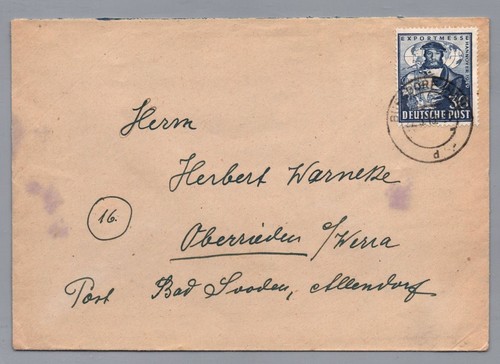 EXPORTMESSE HANNOVER
DEUTSCHE POST
Herrn
Herbert Warneke
16.
Oberrieden a/Werra
Post Bad Sooden, Allendorf